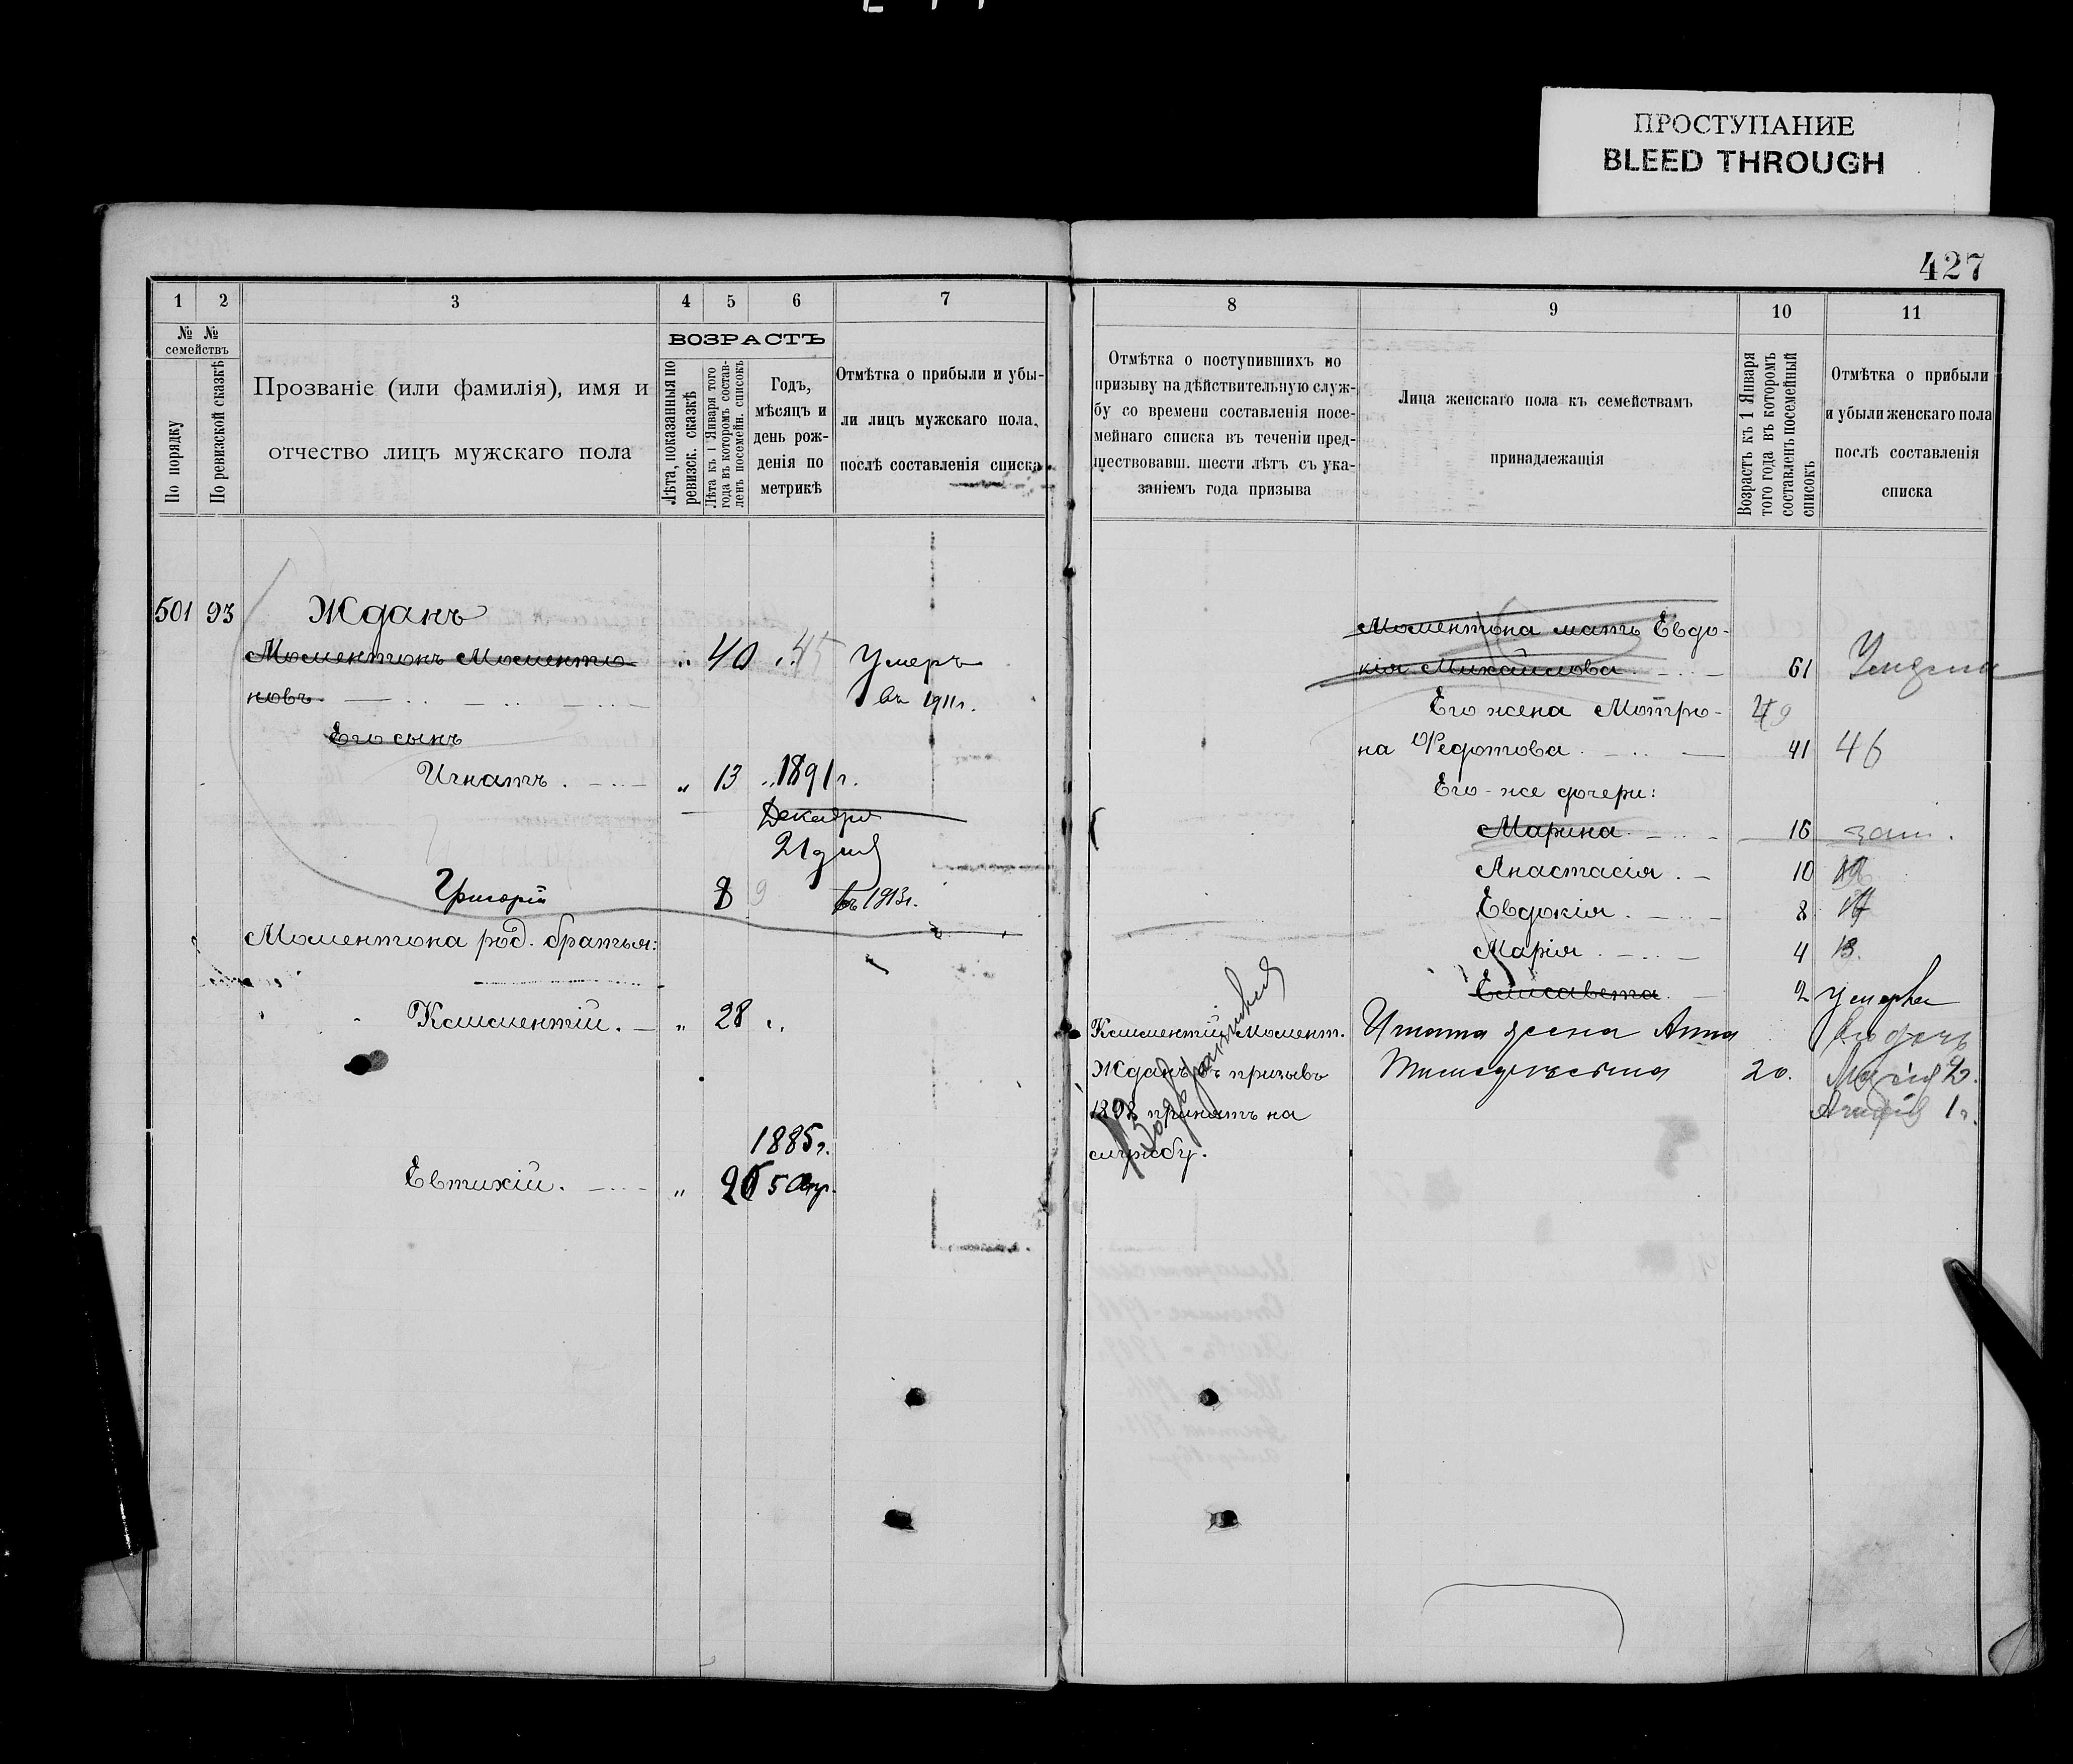 ПРОСТУПАНИЕ
BLEED THROUGH
427
1
2
3
4
5
6
7
№ №
семействъ
По порядку
По ревизской сказкѣ
Прозваніе (или фамилія), имя и
отчество лицъ мужскаго пола
ВОЗРАСТЪ
Лѣта, показанныя по
ревизск. сказкѣ
Лѣта къ 1 Января того
года въ которомъ состав-
ленъ посемейн. списокъ
Годъ,
мѣсяцъ и
день рож-
денія по
метрикѣ
Отмѣтка о прибыли и убы-
ли лицъ мужскаго пола,
послѣ составленія списка
501 93 Жданъ
Моментонъ Моменто- „ 40 45 Умеръ
новъ. въ 1911г.
Его сынъ
Игнатъ. „ 13 1891г.
Декабря
21 дня
Григорій 8 9 въ 1913г.
Моментона род. братья:
Климентій. „ 28 „
1885г.
Евтихій. „ 20 5 Апр.
8
9
10
11
Отмѣтка о поступившихъ по
призыву на дѣйствительную служ-
бу со времени составленія посе-
мейнаго списка въ теченіи пред-
шествовавш. шести лѣтъ съ ука-
заніемъ года призыва
Лица женскаго пола къ семействамъ
принадлежащія
Возрастъ къ 1 Января
того года въ которомъ
составленъ посемейный
списокъ
Отмѣтка о прибыли
и убыли женскаго пола
послѣ составленія
списка
Моментона мать Евдо-
кія Михайлова. 61
Его жена Мотро- 49
на Федотова. 41 46
Его-же дочери:
Марина. 16 зам.
Анастасія. 10
Евдокія. 8
Марія. 4 13.
Елисавета. 2 умерла
Климентій Момент. жена Анна его дочь
Жданъ въ призывъ 20. Марія 2.
1898 принятъ на 1г.
службу.